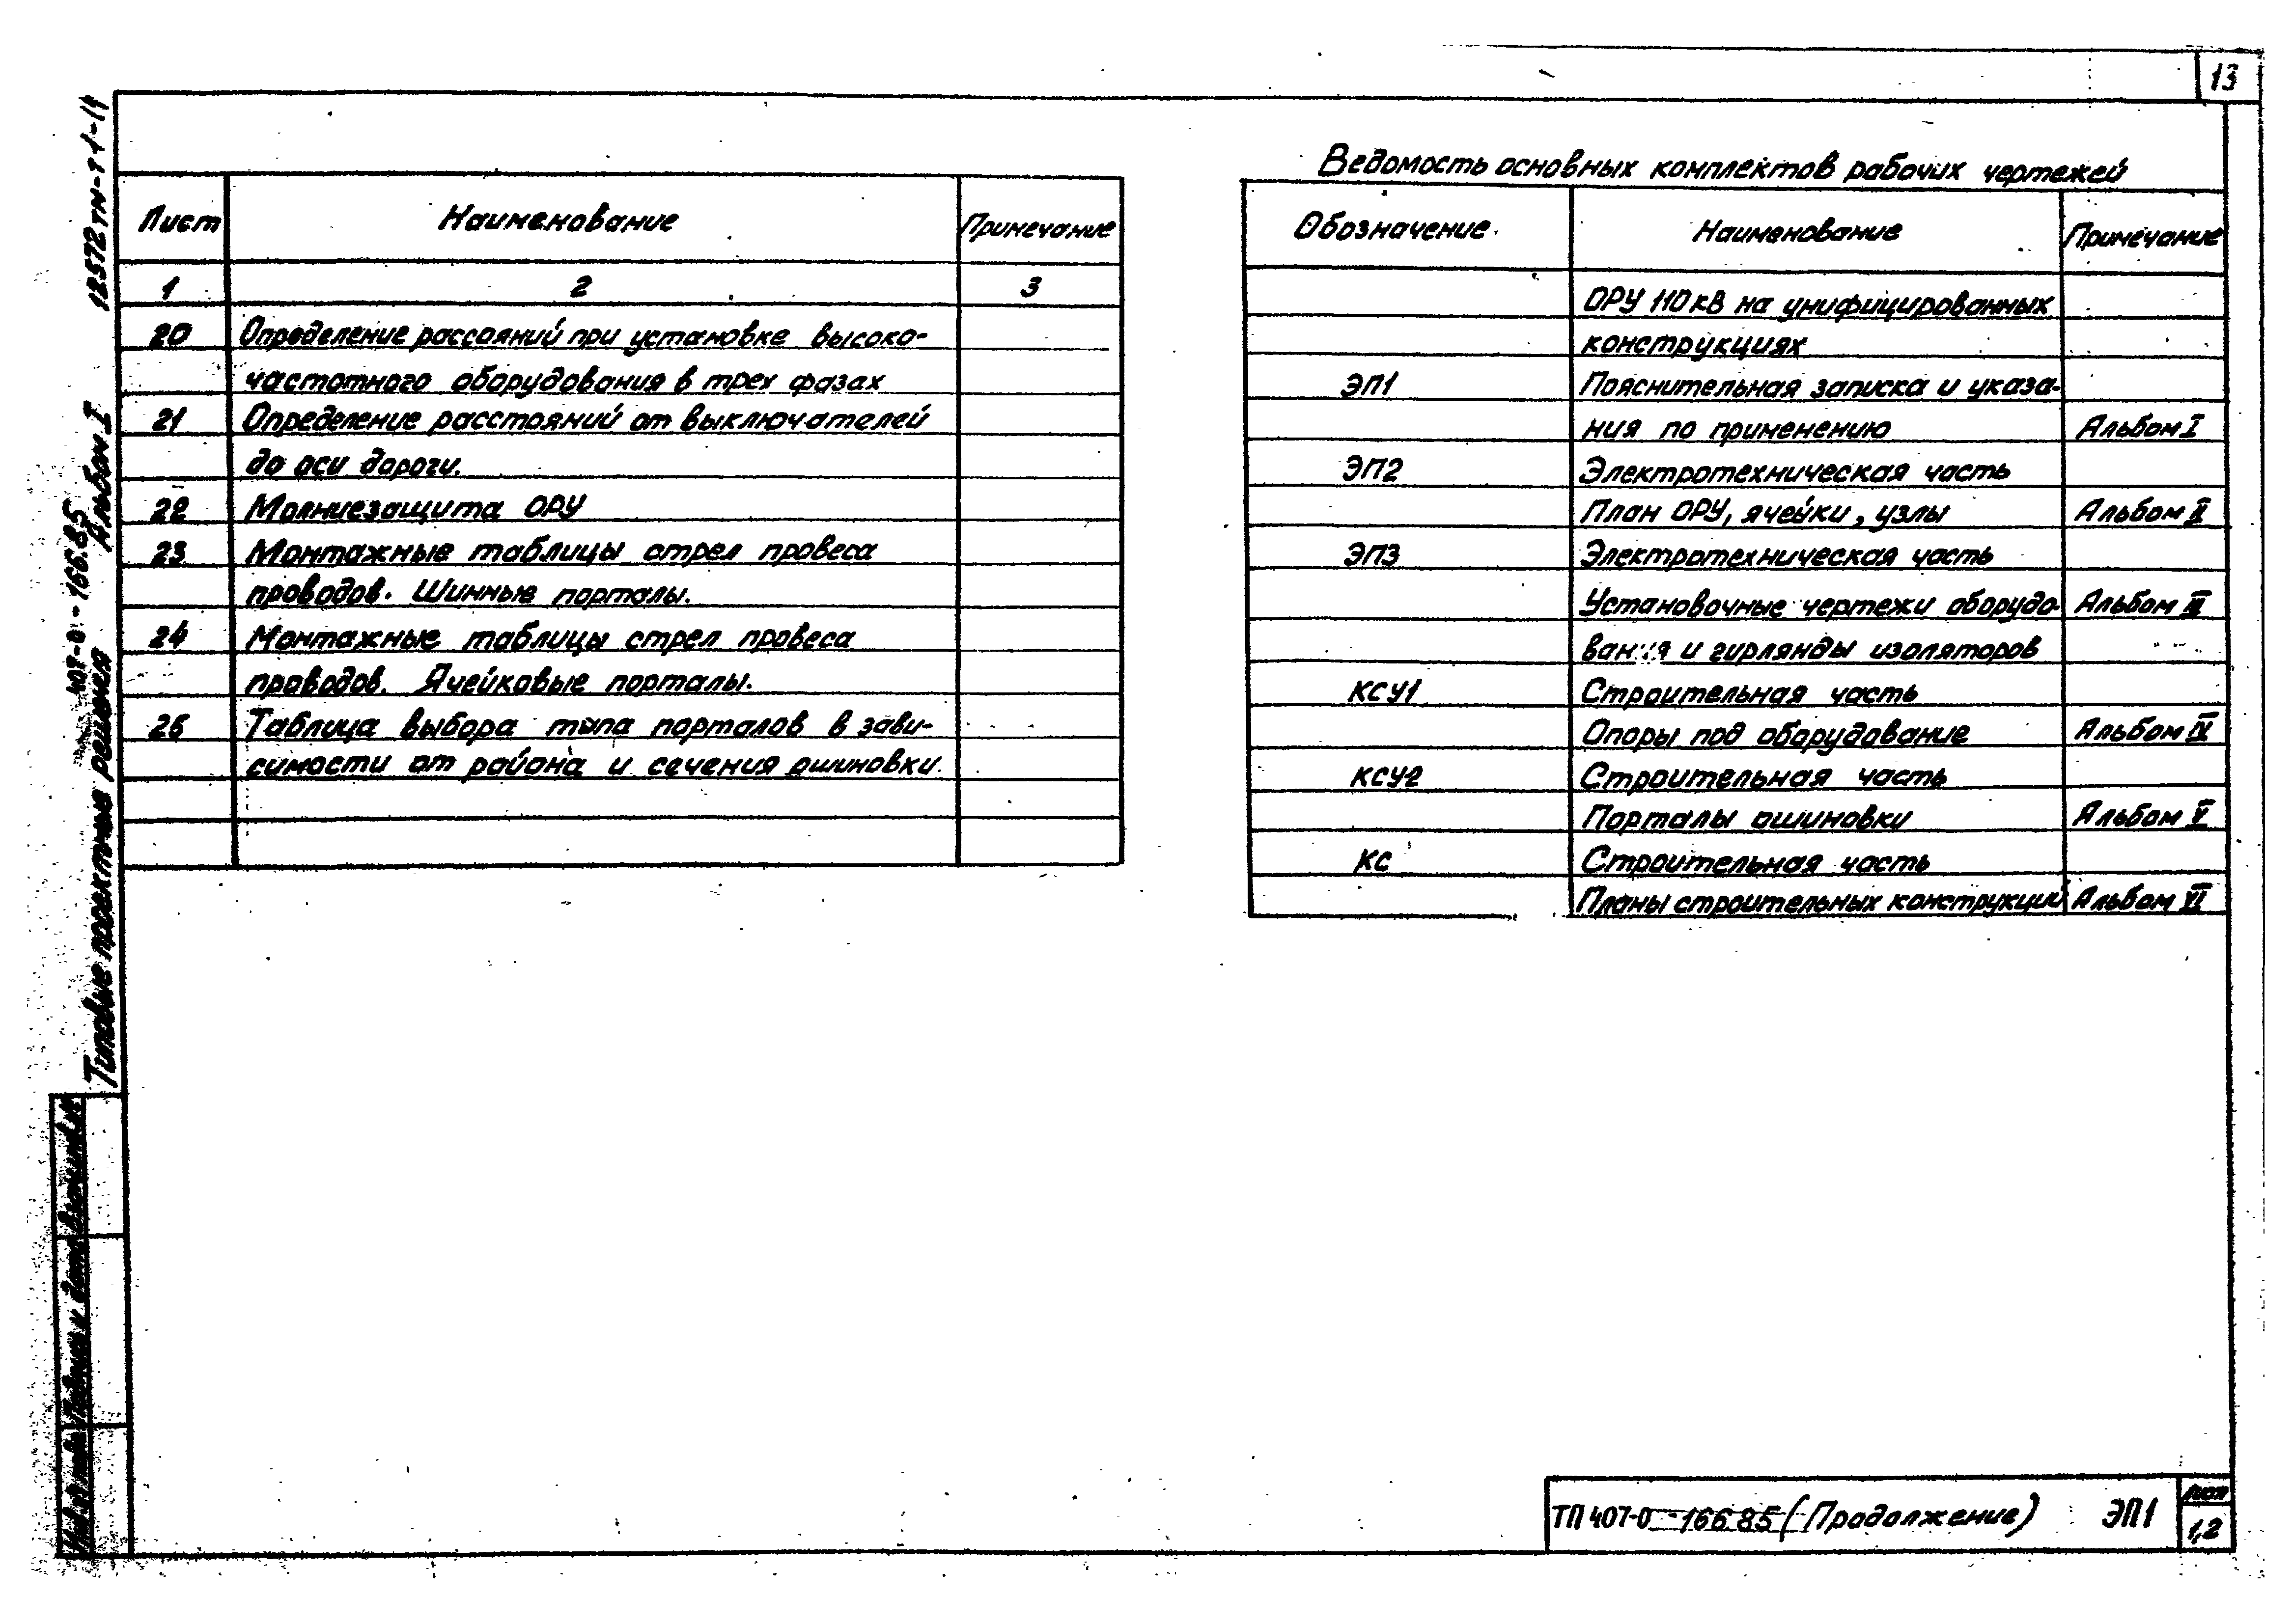 13
12572тм-т1-14
Альбом I
407-0-166.85
Типовые проектные решения
Лист Наименование Примечание
1 2 3
20 Определение рассояний при установке высоко-
частотного оборудования в трех фазах
21 Определение расстояний от выключателей
до оси дороги.
22 Молниезащита ОРУ
23 Монтажные таблицы стрел провеса
проводов. Шинные порталы.
24 Монтажные таблицы стрел провеса
проводов. Ячейковые порталы.
25 Таблица выбора типа порталов в зави-
симости от района и сечения ошиновки.
Ведомость основных комплектов рабочих чертежей
Обозначение Наименование Примечание
ОРУ 110 кВ на унифицированных
конструкциях
ЭП1 Пояснительная записка и указа-
ния по применению Альбом I
ЭП2 Электротехническая часть
План ОРУ, ячейки, узлы Альбом II
ЭП3 Электротехническая часть
Установочные чертежи оборудо- Альбом III
вания и гирлянды изоляторов
КСУ1 Строительная часть
Опоры под оборудование Альбом IV
КСУ2 Строительная часть
Порталы ошиновки Альбом V
КС Строительная часть
Планы строительных конструкций Альбом VI
Подпись и дата
ТП 407-0-166 85 (Продолжение) ЭП1
Лист
1,2